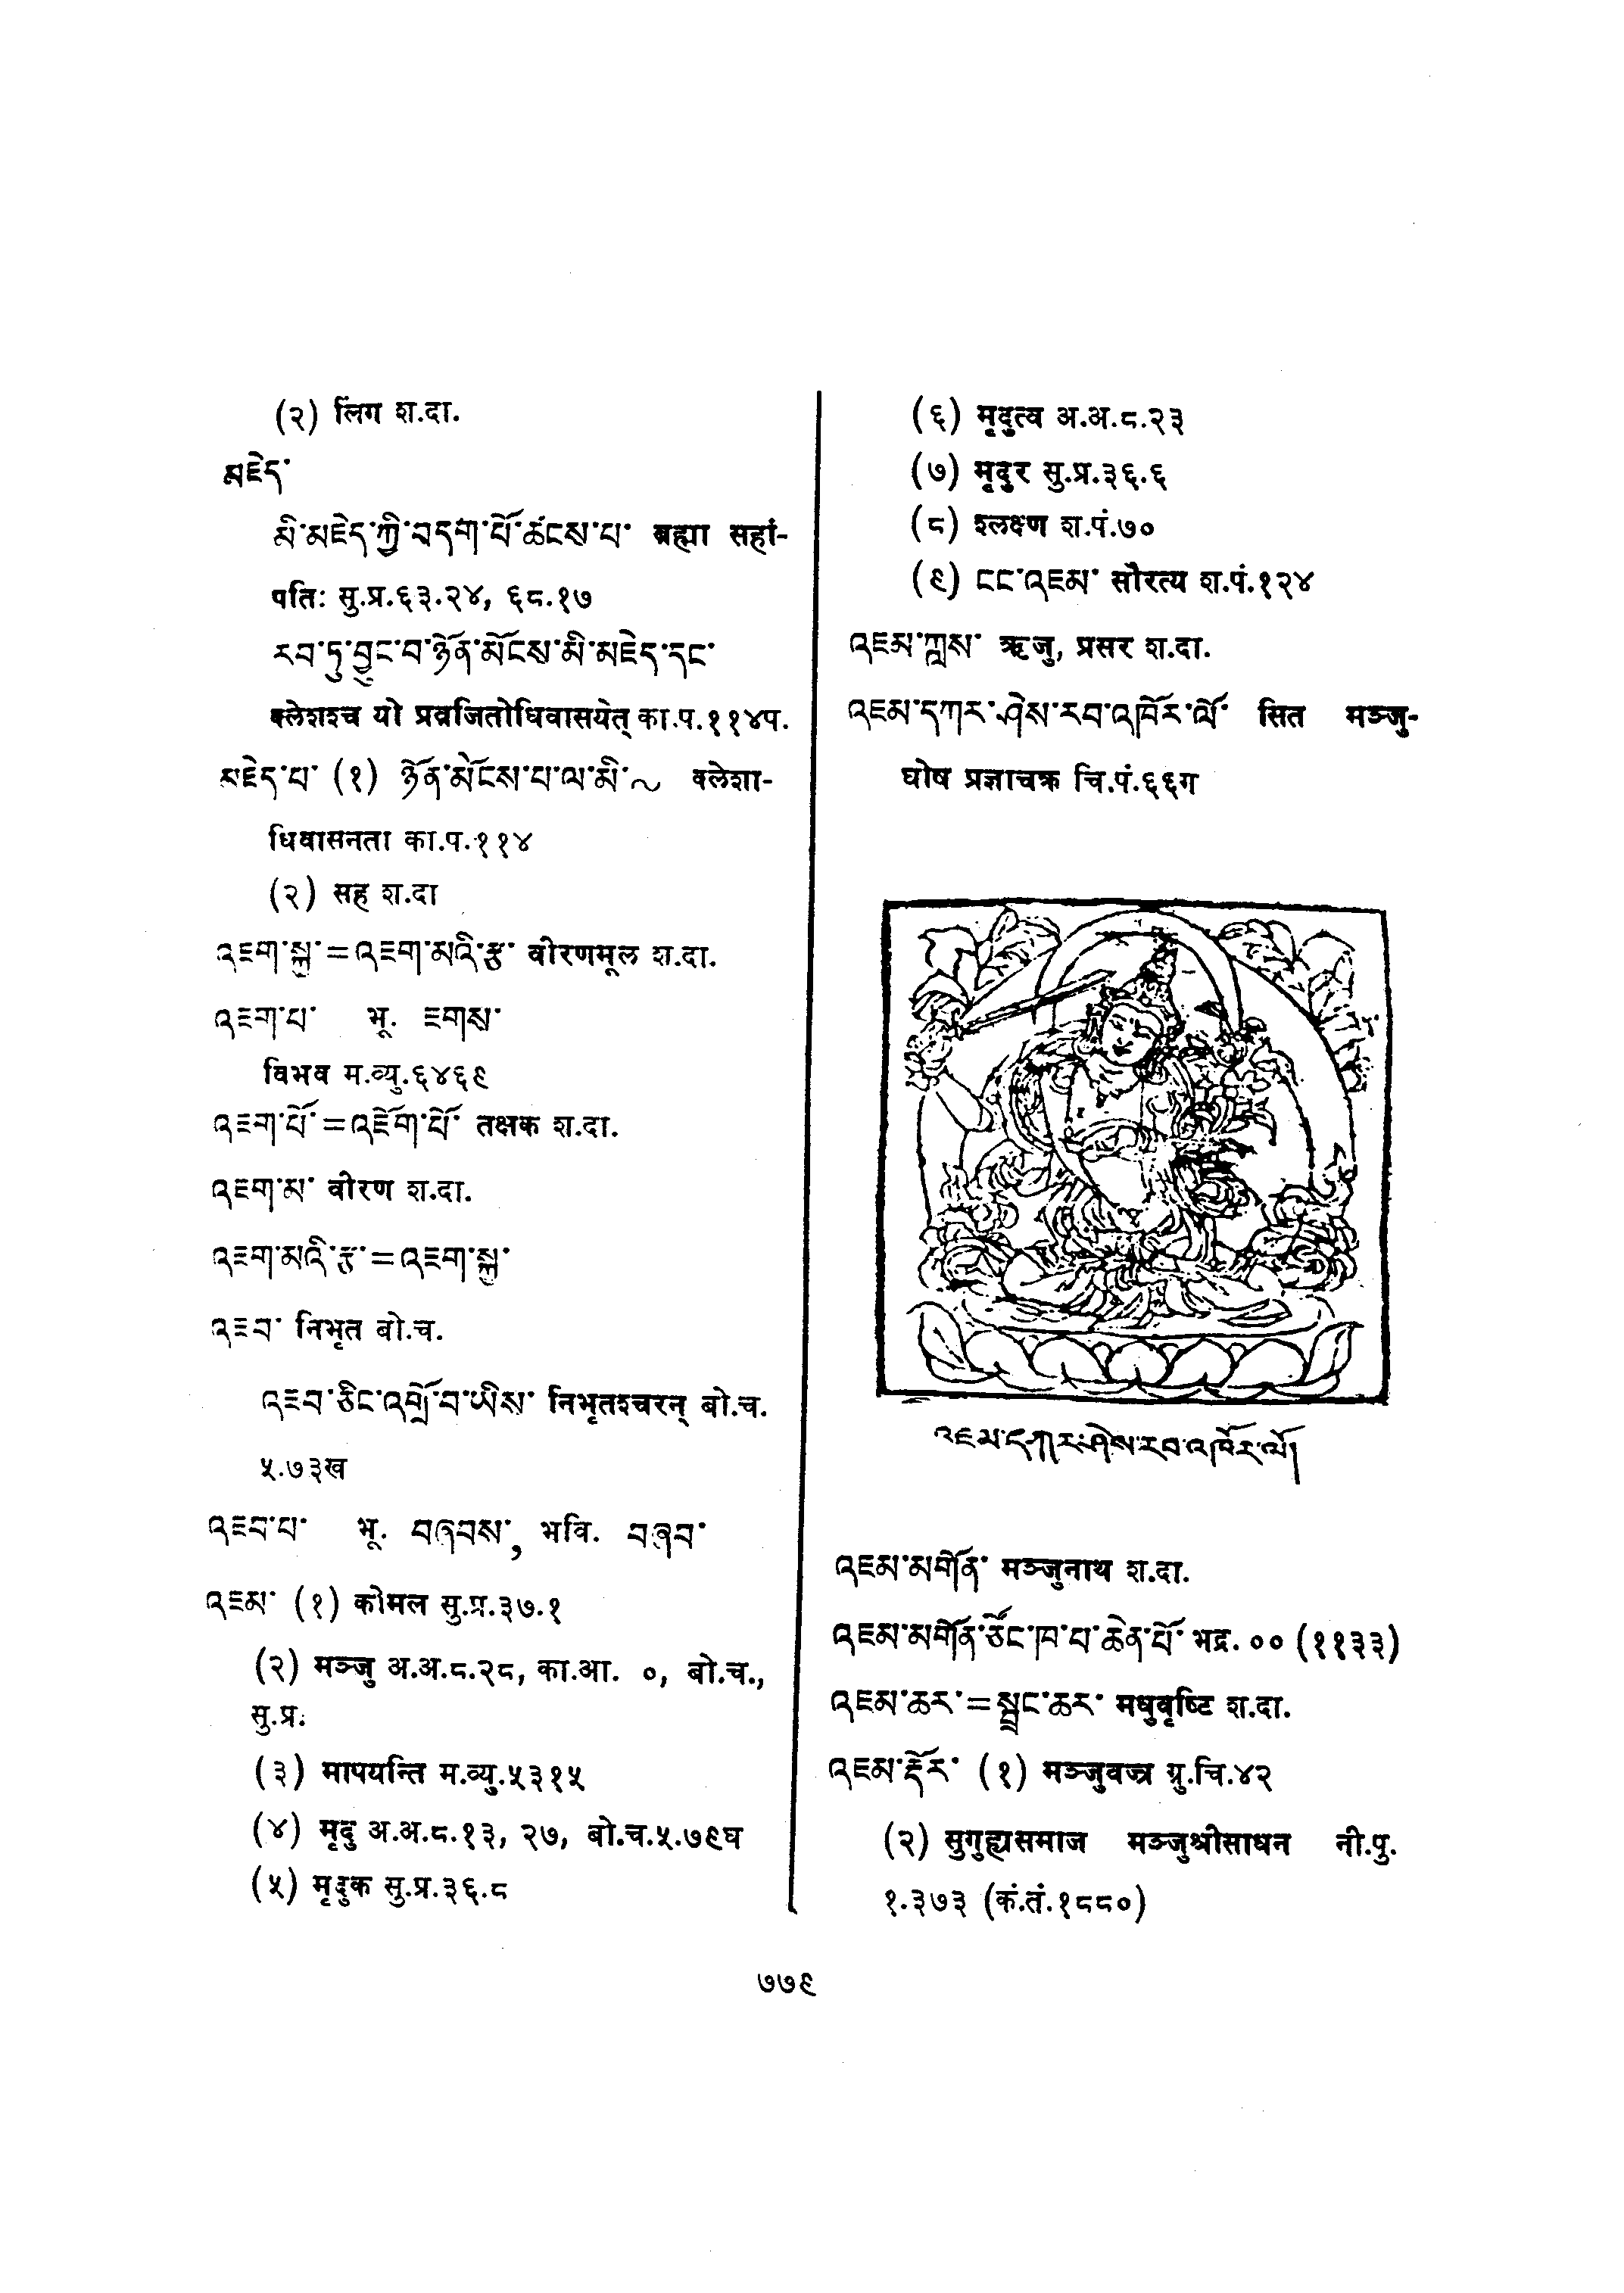 (२) लिंग श.दा.
མཇེད་
མི་མཇེད་ཀྱི་བདག་པོ་ཚངས་པ་ ब्रह्मा सहां-
पतिः सु.प्र.६३.२४, ६८.१७
རབ་ཏུ་བྱུང་བ་ཉོན་མོངས་མི་མཇེད་དང་
क्लेशश्च यो प्रव्रजितोधिवासयेत् का.प.११४प.
མཇེད་པ་ (१) ཉོན་མོངས་པ་ལ་མི་~ क्लेशा-
धिवासनता का.प.११४
(२) सह श.दा
འཇག་སྐྱུ་=འཇག་མའི་རྩ་ वीरणमूल श.दा.
འཇག་པ་ भू. ཇགས་
विभव म.व्यु.६४६९
འཇག་པོ་=འཇོག་པོ་ तक्षक श.दा.
འཇག་མ་ वीरण श.दा.
འཇག་མའི་རྩ་=འཇག་སྐྱུ་
འཇབ་ निभृत बो.च.
འཇབ་ཅིང་འགྲོ་བ་ཡིས་ निभृतश्चरन् बो.च.
५.७३ख
འཇབ་པ་ भू. བཞབས་, भवि. བཞབ་
འཇམ་ (१) कोमल सु.प्र.३७.१
(२) मञ्जु अ.अ.८.२८, का.आ. ०, बो.च.,
सु.प्र.
(३) मापयन्ति म.व्यु.५३१५
(४) मृदु अ.अ.८.१३, २७, बो.च.५.७९घ
(५) मृदुक सु.प्र.३६.८
(६) मृदुत्व अ.अ.८.२३
(७) मृदुर सु.प्र.३६.६
(८) श्लक्ष्ण श.पं.७०
(९) ངང་འཇམ་ सौरत्य श.पं.१२४
འཇམ་ཀླས་ ऋजु, प्रसर श.दा.
འཇམ་དཀར་ཤེས་རབ་འཁོར་ལོ་ सित मञ्जु-
घोष प्रज्ञाचक्र चि.पं.६६ग
འཇམ་དཀར་ཤེས་རབ་འཁོར་ལོ།
འཇམ་མགོན་ मञ्जुनाथ श.दा.
འཇམ་མགོན་ཙོང་ཁ་པ་ཆེན་པོ་ भद्र. ०० (११३३)
འཇམ་ཆར་=སྦྲང་ཆར་ मधुवृष्टि श.दा.
འཇམ་རྡོར་ (१) मञ्जुवज्र ग्रु.चि.४२
(२) सुगुह्यसमाज मञ्जुश्रीसाधन नी.पु.
१.३७३ (कं.तं.१८८०)
७७९